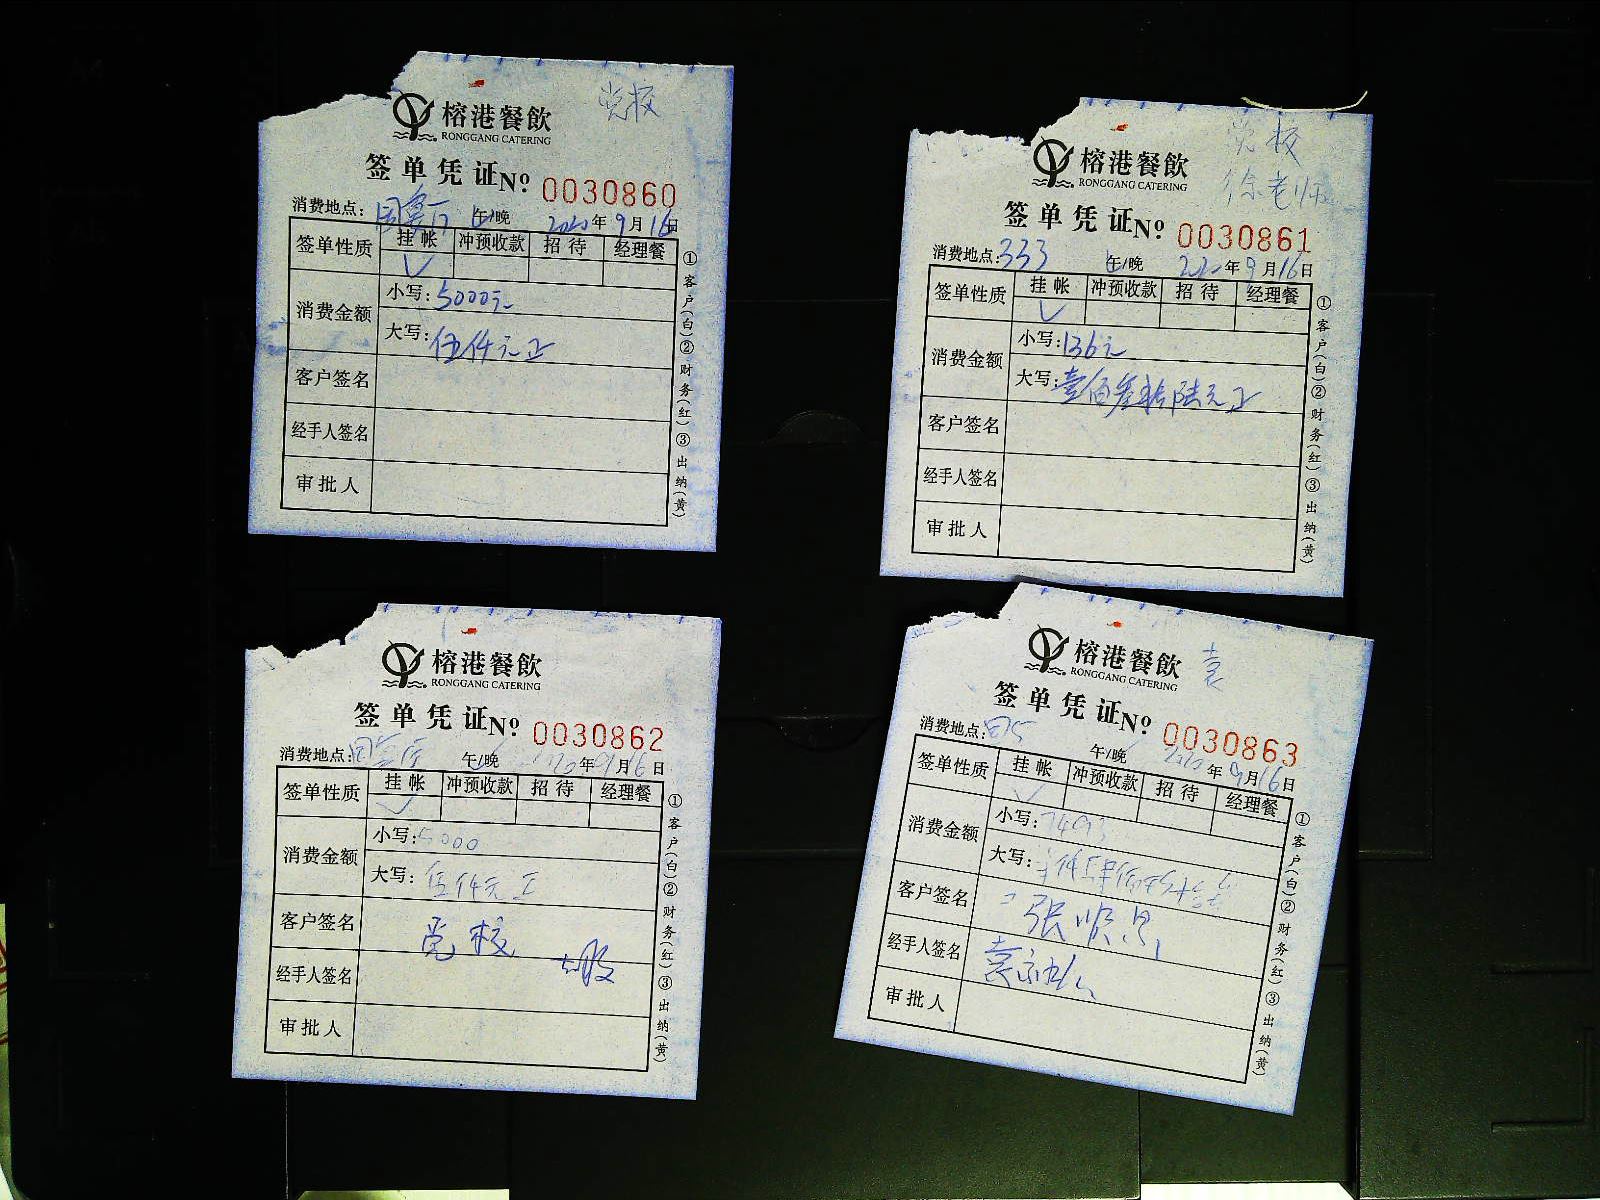 党校
榕港餐飲
RONGGANG CATERING
签单凭证№ 0030860
消费地点: 午/晚 2020年9月16日
签单性质 挂帐 冲预收款 招待 经理餐
✓
消费金额 小写: 5000元
大写: 伍仟元正
客户签名
经手人签名
审批人
①客户(白)②财务(红)③出纳(黄)
党校
徐老师
榕港餐飲
RONGGANG CATERING
签单凭证№ 0030861
消费地点: 333 午/晚 2020年9月16日
签单性质 挂帐 冲预收款 招待 经理餐
✓
消费金额 小写: 136元
大写: 壹佰叁拾陆元正
客户签名
经手人签名
审批人
①客户(白)②财务(红)③出纳(黄)
榕港餐飲
RONGGANG CATERING
签单凭证№ 0030862
消费地点: 午/晚 2020年9月16日
签单性质 挂帐 冲预收款 招待 经理餐
✓
消费金额 小写: 5000
大写: 伍仟元正
客户签名 党校
经手人签名
审批人
①客户(白)②财务(红)③出纳(黄)
袁
榕港餐飲
RONGGANG CATERING
签单凭证№ 0030863
消费地点: 午/晚 2020年9月16日
签单性质 挂帐 冲预收款 招待 经理餐
✓
消费金额 小写:
大写:
客户签名 张顺
经手人签名 袁
审批人
①客户(白)②财务(红)③出纳(黄)